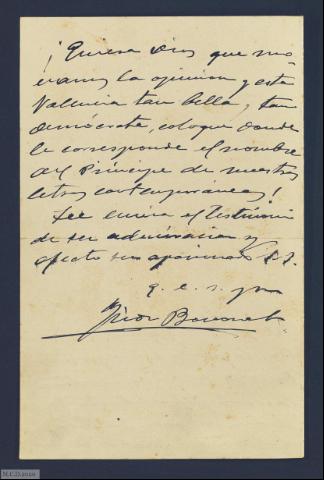 ¡Quiera Dios que mo-
vamos la opinion y esta
Valencia tan bella, tan
demócrata, coloque donde
le corresponde el nombre
del Principe de nuestras
letras contemporaneas!
Le envia el testimonio
de su admiracion y
afecto su apasionado S. S.
q. e. s. m.
M.C.D. 2022